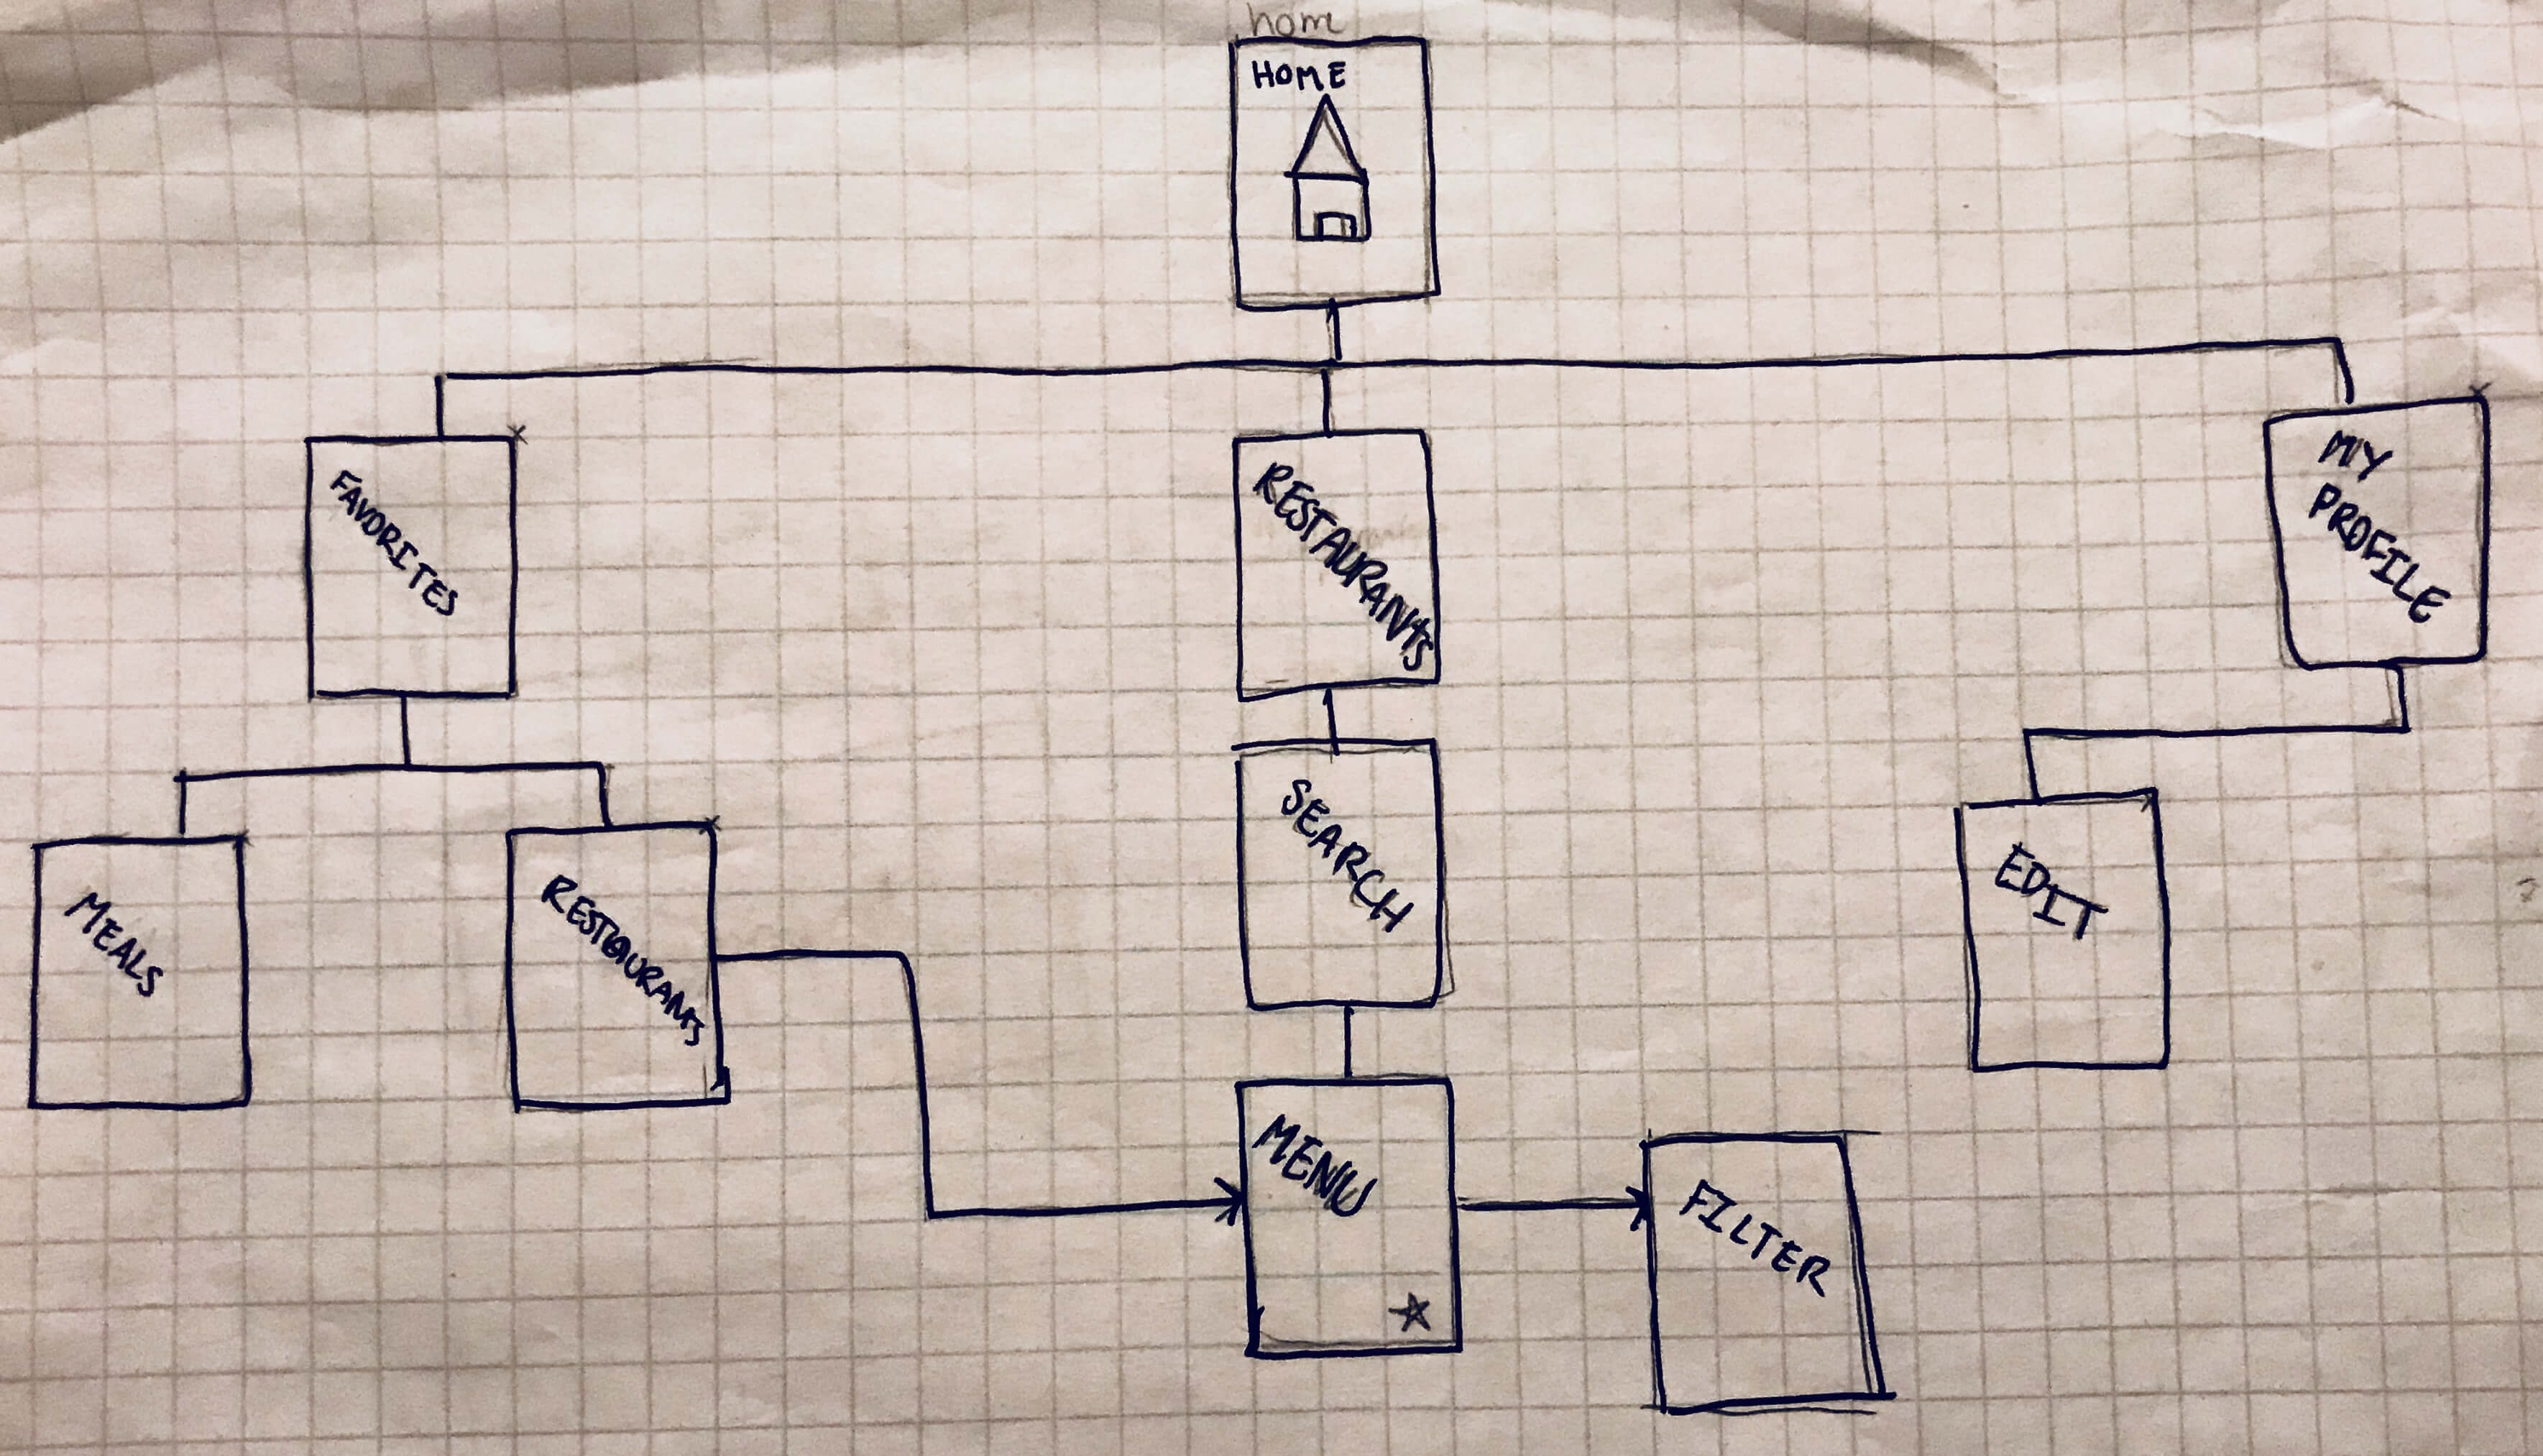 hom
HOME
FAVORITES
RESTAURANTS
MY
PROFILE
MEALS
RESTAURANTS
SEARCH
EDIT
MENU
FILTER